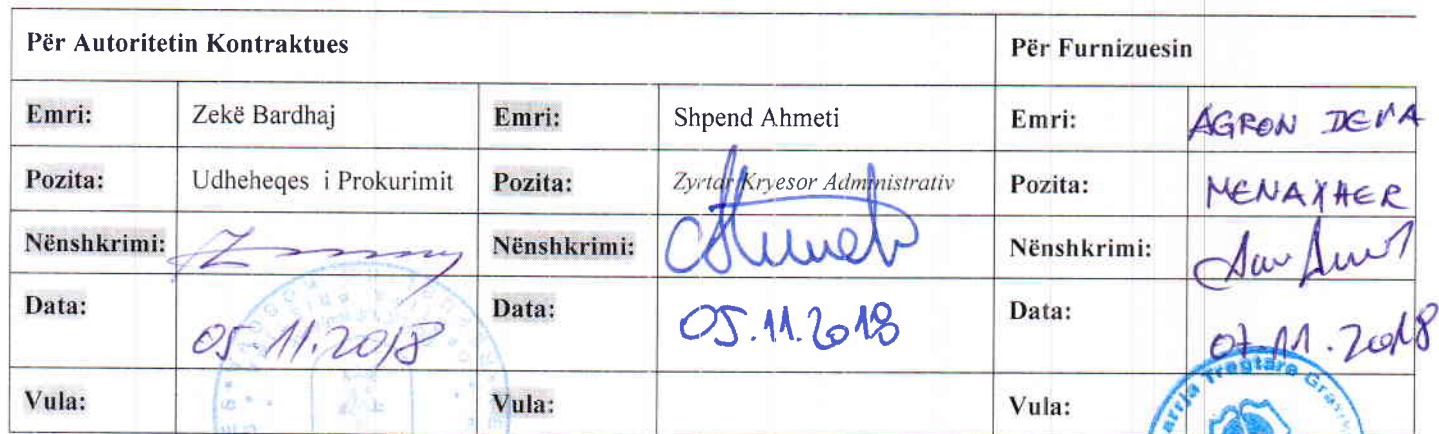 Për Autoritetin Kontraktues Për Furnizuesin
Emri: Zekë Bardhaj Emri: Shpend Ahmeti Emri: AGRON DEMA
Pozita: Udheheqes i Prokurimit Pozita: Zyrtar Kryesor Administrativ Pozita: MENAXHER
Nënshkrimi: Nënshkrimi: Nënshkrimi:
Data: 05.11.2018 Data: 05.11.2018 Data: 07.11.2018
Vula: Vula: Vula:
Tregtare